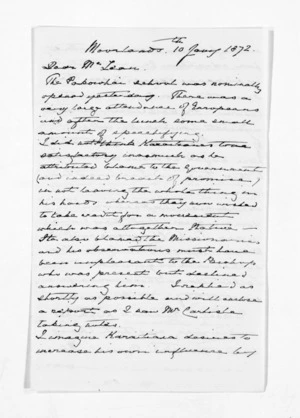 Moorlands 10th Jany 1872.
Dear McLean.
The Pakowhai school was nominally
opened yesterday. There was a
very large attendance of Europeans
and after the lunch some small
amount of speechifying.
I did not think Karaitiana's tone
satisfactory inasmuch as he
attributed blame to the Government
(and indeed breach of promise)
in not leaving the whole thing in
his hands
to take credit for a movement
which was altogether Native —
He also blamed the Missionaries
and his observations must have
been unpleasant to the Bishop
who was present but declined
answering him. I replied as
shortly as possible and will enclose
a report as I saw Mr Carlisle
taking notes.
I imagine Karaitiana desires to
increase his own influence by